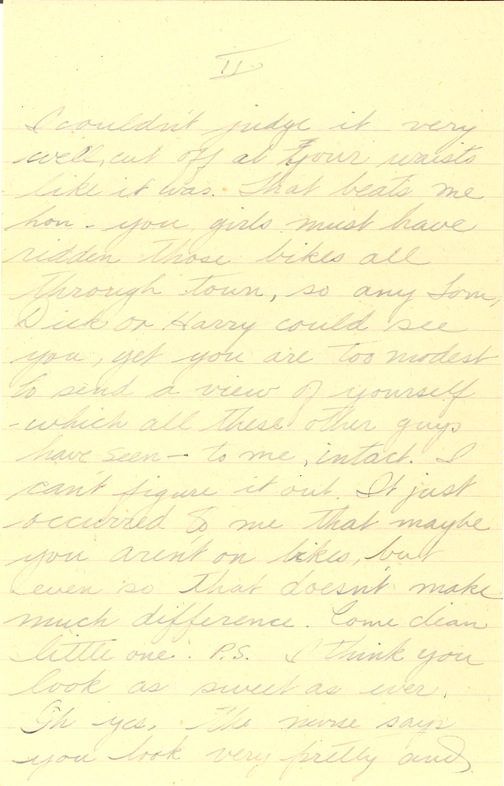 II
I couldn't judge it very
well, cut off at your waists
like it was. That beats me
hon - you girls must have
ridden those bikes all
through town, so any Tom,
Dick or Harry could see
you, yet you are too modest
to send a view of yourself
- which all these other guys
have seen - to me, intact. I
can't figure it out. It just
occurred to me that maybe
you aren't on bikes, but
even so that doesn't make
much difference. Come clean
little one. P.S. I think you
look as sweet as ever.
Oh yes, the nurse says
you look very pretty and